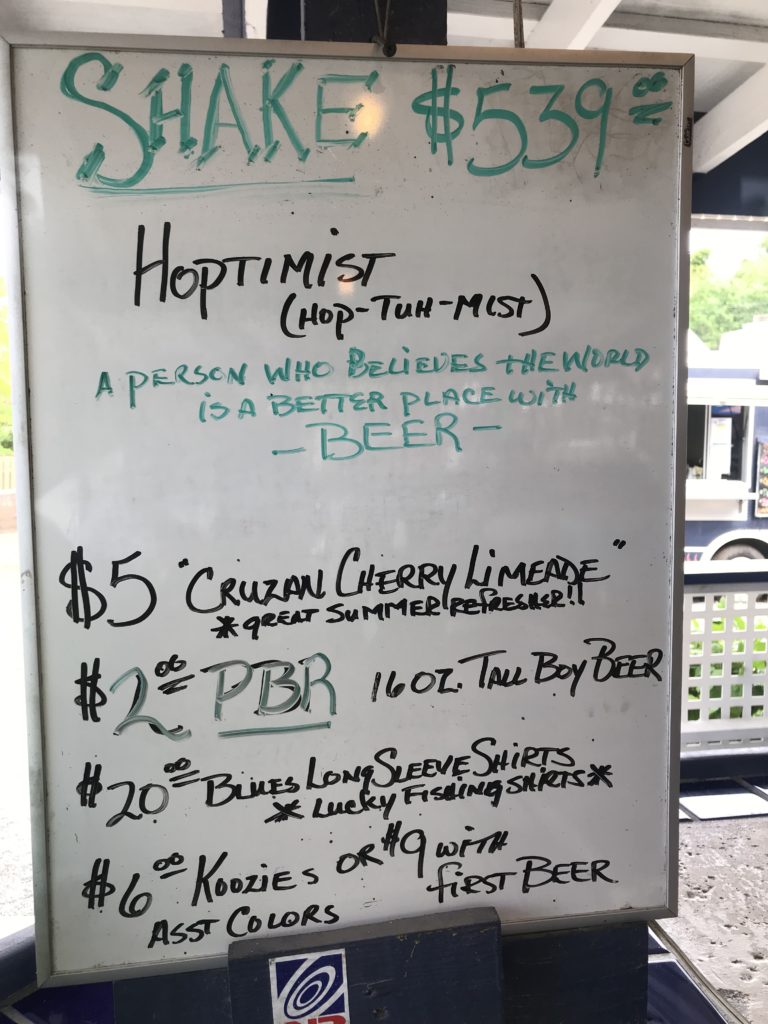 SHAKE $539.00
HOPTIMIST
(HOP-TUH-MIST)
A PERSON WHO BELIEVES THE WORLD
IS A BETTER PLACE WITH
- BEER -
$5 "CRUZAN CHERRY LIMEADE"
* GREAT SUMMER REFRESHER!!
$2.00 PBR 16 OZ. TALL BOY BEER
$20.00 BLUES LONG SLEEVE SHIRTS
* LUCKY FISHING SHIRTS *
$6.00 KOOZIES OR $9 WITH
ASST COLORS FIRST BEER